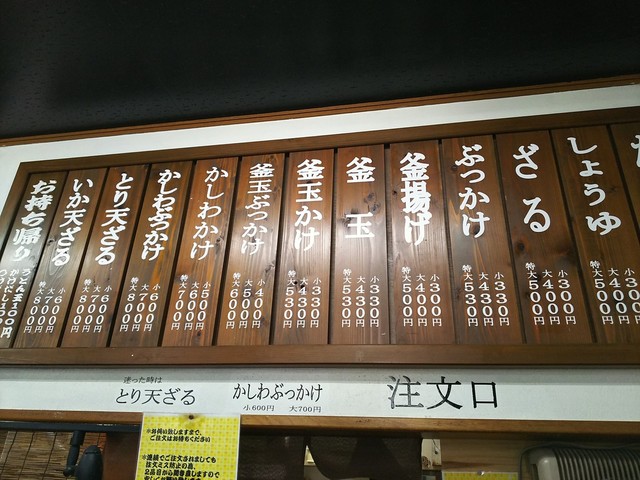 しょうゆ
小300円
大400円
特大500円
ざる
小300円
大400円
特大500円
ぶっかけ
小330円
大430円
特大530円
釜揚げ
小300円
大400円
特大500円
釜玉
小330円
大430円
特大530円
釜玉かけ
小330円
大430円
特大530円
釜玉ぶっかけ
小400円
大500円
特大600円
かしわかけ
小500円
大600円
特大700円
かしわぶっかけ
小600円
大700円
特大800円
とり天ざる
小600円
大700円
特大800円
いか天ざる
小600円
大700円
特大800円
お持ち帰り
迷った時は
とり天ざる
かしわぶっかけ
小600円 大700円
注文口
※お伺い致しますまで、
ご注文はお待ちください
※連続でご注文されましても
注文ミス防止の為、